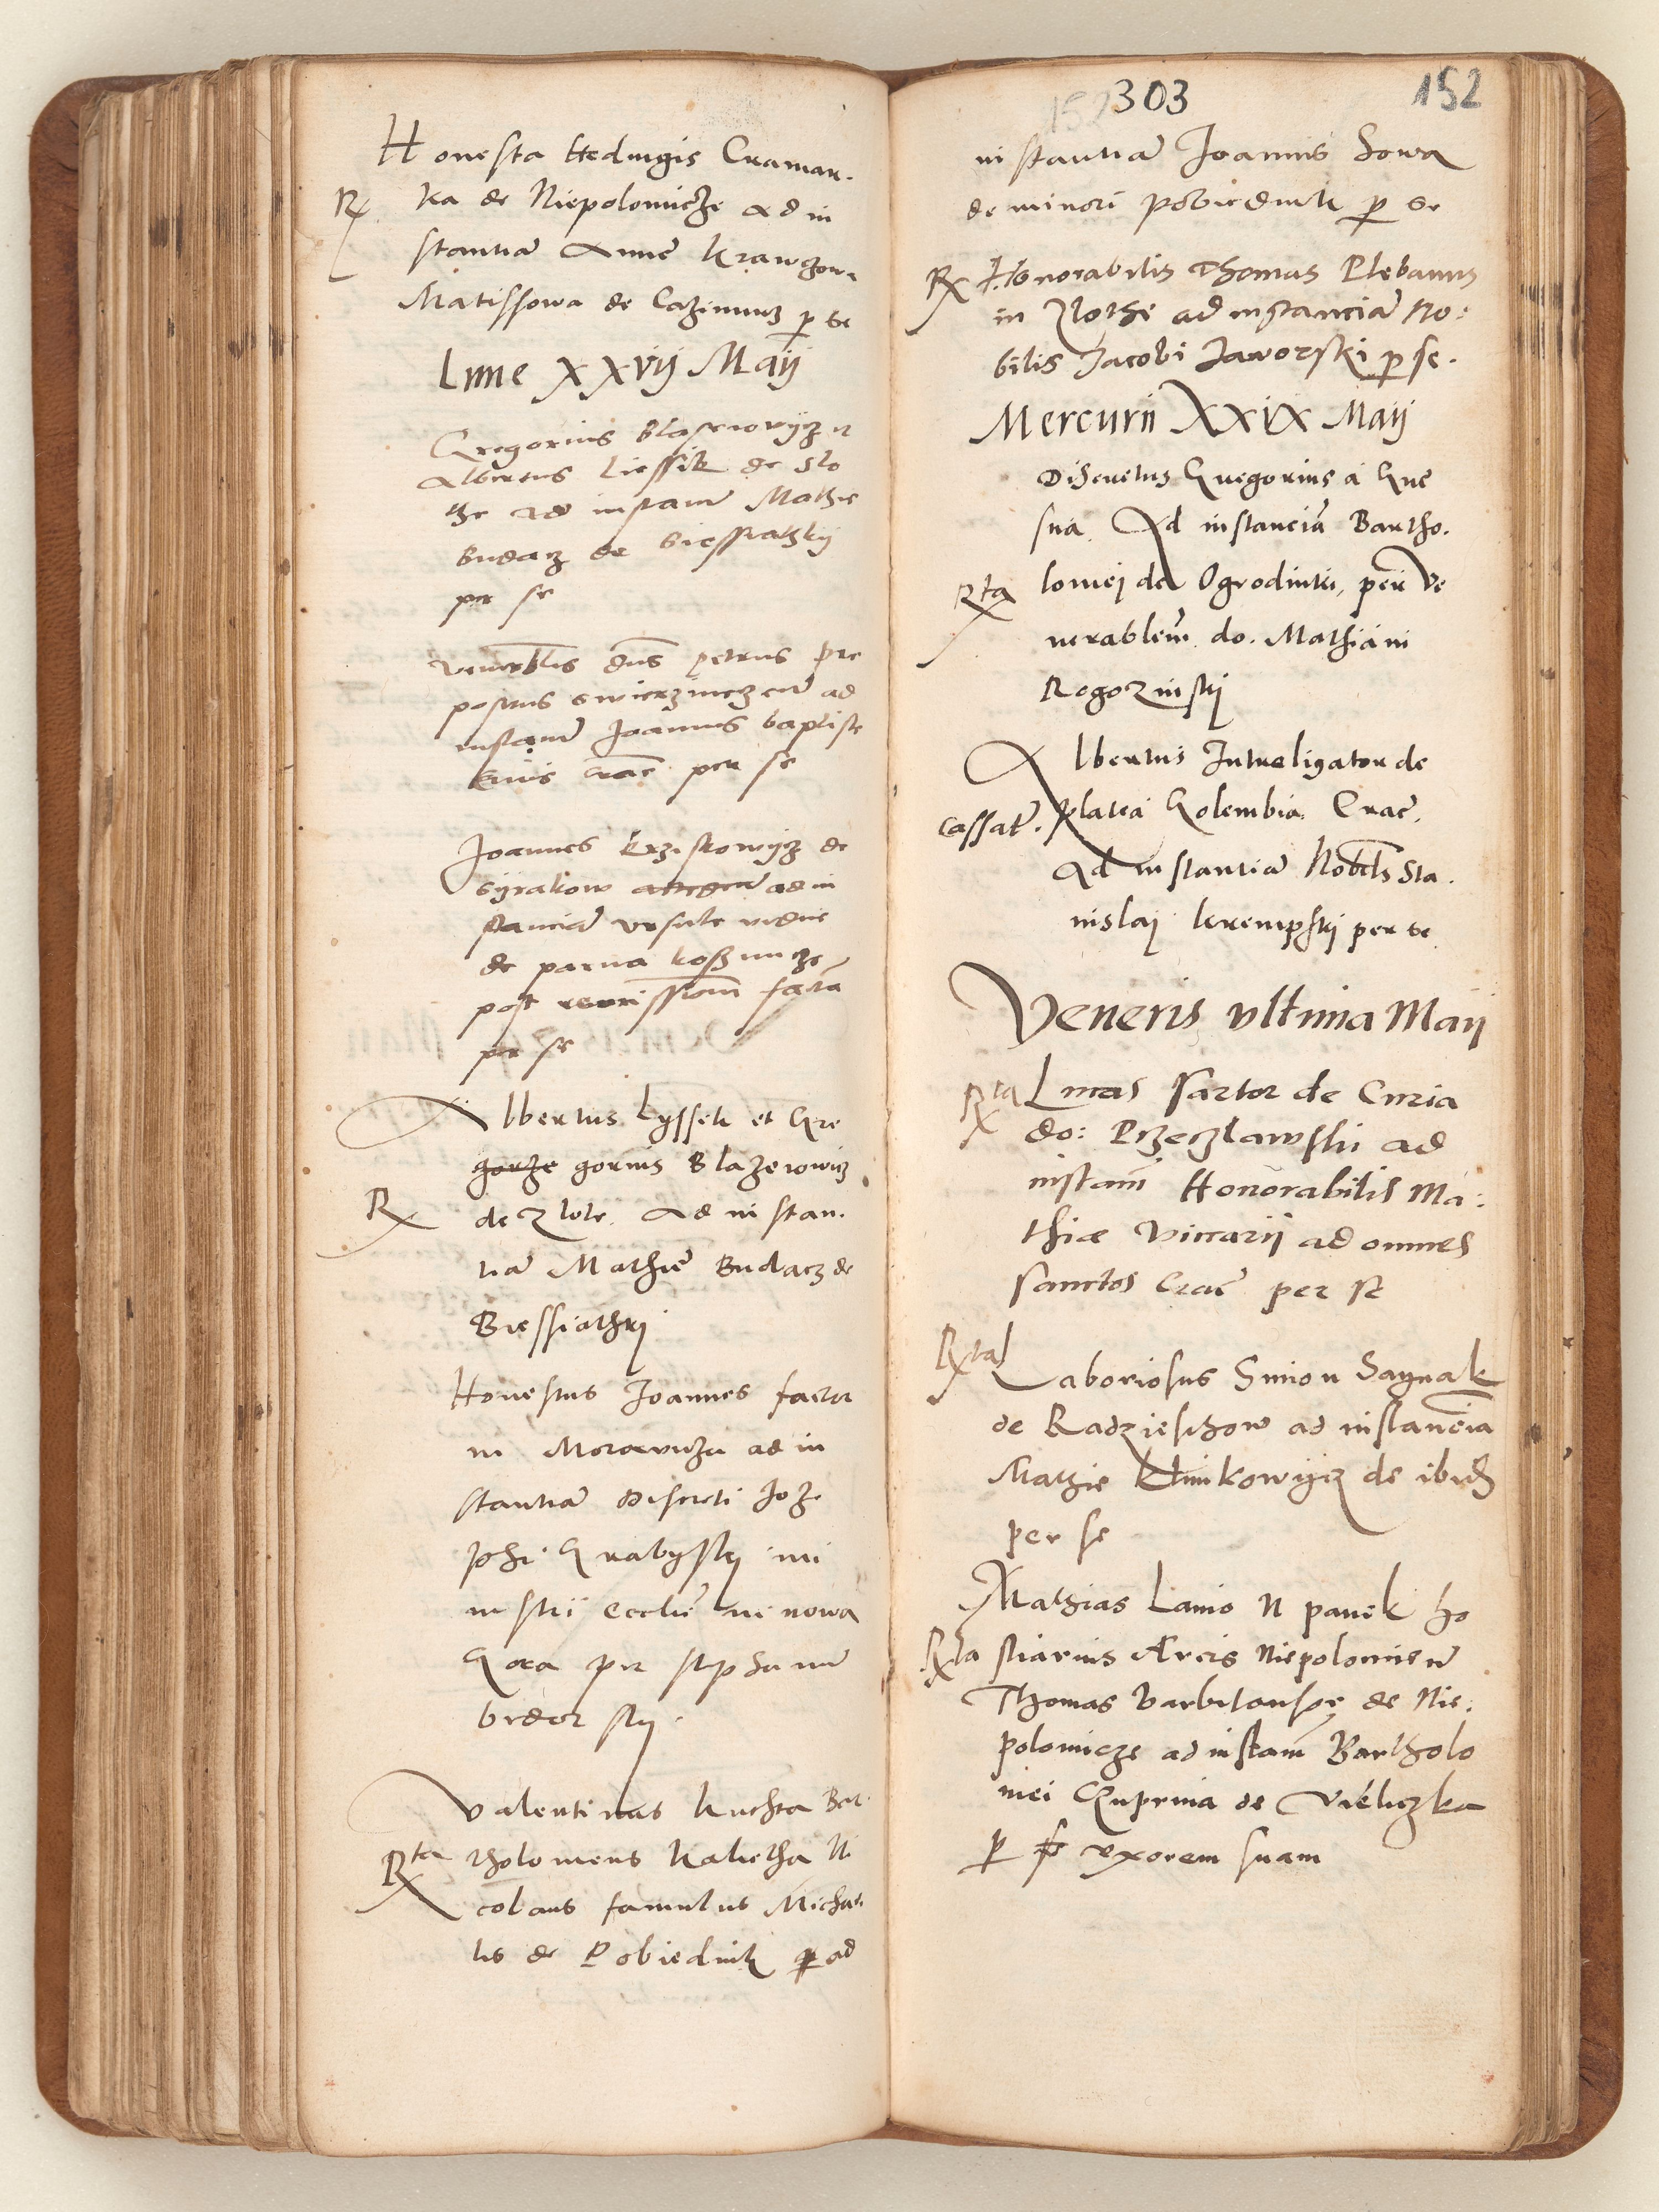 Honesta Hedwigis Craman-
Rx ka de Niepolomicze ad in
stantiā Annē Krawczowa
Matissowa de Cazimirz p se
Lune XXVij Maij
Gregorius blasseiowijcz et
Albertus liessik de Slo
the ad instanē Mathie
budacz de biessiathkij
per se
venerblis dns petrus pre
positus swierzinczeñ ad
instanē Joannis baptiste
civis crac per se
Joannes krziskowijcz de
sijrakow ad in
stanciā vrsule vidue
de parva kosznicze
post remissionē factā
per se
Albertus Lysseк et Gre
gorze gorius Blazeiowicz
Rx de Zlote. Ad in stan.
tiā Mathiē Budacz de
Biessiathkij
Honestus Joannes factor
in Morawicza ad in
stantiā discreti Joze
phi Grabyskij mi
nistri eccliē in nowa
Gora per stephanū
bedorskij.
Valentinus Kuchta Bar
Rta tholomeus Kaletha Ni
colaus famulus Michae
lis de Pobiednik ad
303
152
152
instantiā Joannis Sowa
de minori pobiednik p se
Rx Honorabilis Thomas Plebanus
in Zlothe ad instanciā No:
bilis Jacobi Jaworski p se.
Mercurii XXIX Maij
Discretus Gregorius a Gne
sna. Ad instanciā Bartho.
Rta lomej de Ogrodniki, per Ve
nerablem̄. do. Mathiā ni
Rogozinskj
Albertus Introligator de
cassat̄. platea Golembia. Crac̄.
Ad instantiā Nobils Sta.
nislaj krempskj per se
Veneris vltima Maij
Rta Lucas sartor de Curia
do: Przeczlawski ad
instam̄ Honorabilis Ma:
thiæ Viccarij ad omnes
sanctos Crac̄ per se
Rta Laboriosus Simon Saynak
de Radzieschow ad instanciā
Mathie klimkowijcz de ibid
per se
Mathias Lanio N pauek ho
Rta stiarius Arcis Niepolomicen̄
Thomas barbitonsor de Nie:
polomicze ad instam̄ Bartholo
mei Czuprina de Vieliczka
p se vxorem suam